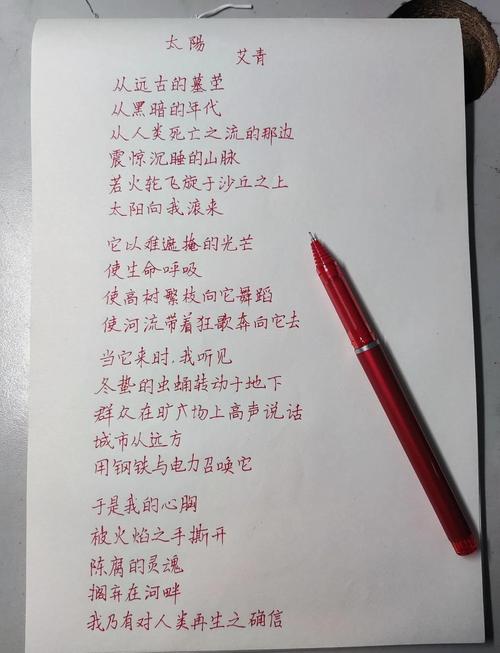 太陽
艾青
从远古的墓茔
从黑暗的年代
从人类死亡之流的那边
震惊沉睡的山脉
若火轮飞旋于沙丘之上
太阳向我滚来
它以难遮掩的光芒
使生命呼吸
使高树繁枝向它舞蹈
使河流带着狂歌奔向它去
当它来时,我听见
冬蛰的虫蛹转动于地下
群众在旷场上高声说话
城市从远方
用钢铁与电力召唤它
于是我的心胸
被火焰之手撕开
陈腐的灵魂
搁弃在河畔
我乃有对人类再生之确信